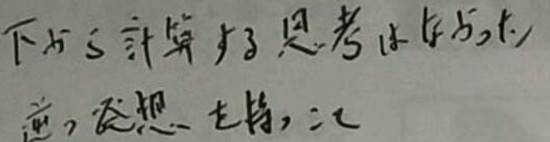 下から計算する思考はなかった
逆の発想を持つこと